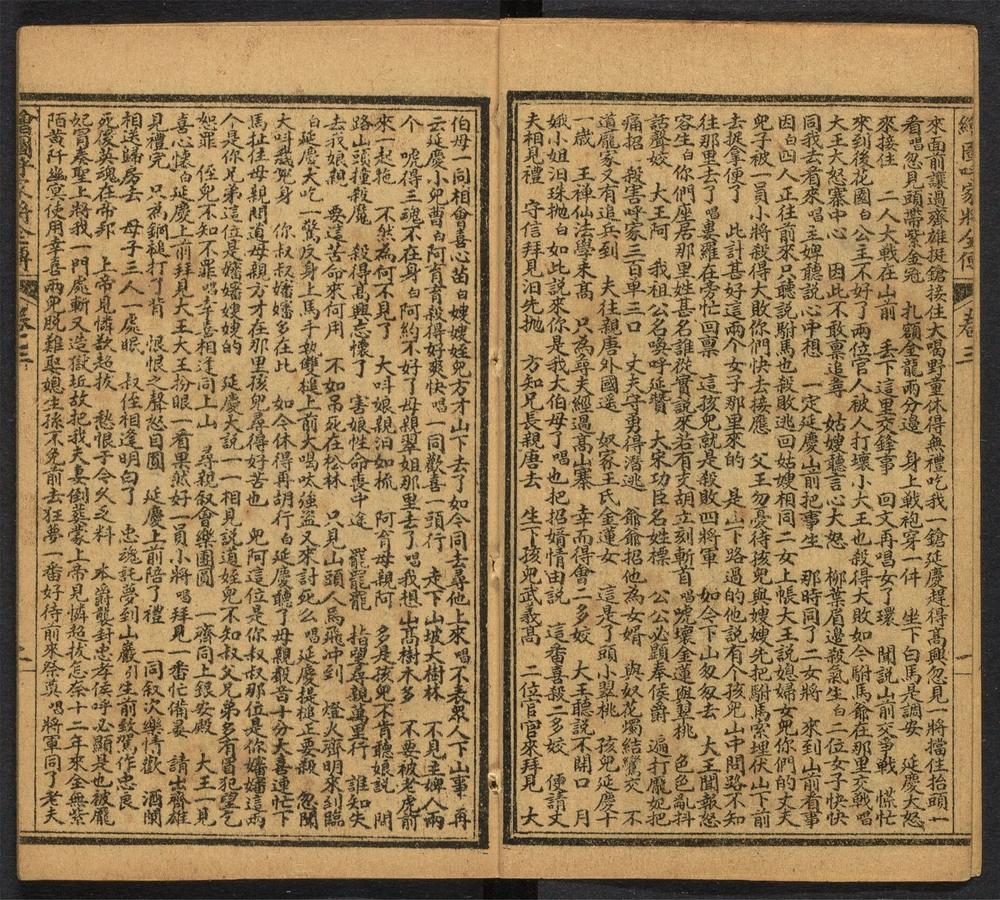 繪圖呼家將全傳 卷三 一
來面前讓過齊雄挺鎗接住大喝野童休得無禮吃我一鎗延慶趕得高興忽見一將擋住抬頭一
看唱忽見頭帶紫金冠 扎額金龍兩分邊 身上戰袍穿一件 坐下白馬是調安 延慶大怒
來接住 二人大戰在山前 丟下這里交鋒事 回文再唱女了環 聞說山前交爭戰 慌忙
來到後花園白公主不好了兩位官人被人打壞小大王也殺得大敗如今駙馬爺在那里交戰唱
大王大怒寨中心 因此不敢稟追尋 姑嫂聽言心大怒 柳葉眉邊殺氣生白二位女子快快
同我去看來唱主婢聽說心中想 一定延慶山前把事生 那時同了二女將 來到山前看事
因白四人正往前來只聽說駙馬也殺敗逃回姑嫂相同二女上帳大王說媳婦女兒你們的丈夫
兒子被一員小將殺得大敗你們快去接應 父王勿憂待孩兒與嫂嫂先把駙馬索埋伏山下前
去捉拿便了 此計甚好這兩个女子那里來的 是山下路過的他說有个孩兒山中問路不知
往那里去了唱嘍羅在旁忙回稟 這孩兒就是殺敗四將軍 如今下山匆匆去 大王聞報怒
容生白你們座居那里姓甚名誰從實說來若有支胡立刻斬首唱唬壞金蓮與翠桃 色色亂抖
話聲姣 大王阿 我祖公名喚呼延贊 大宋功臣名姓標 公公必顕奉侯爵 遍打龐妃把
痛招 殺害呼家三百單三口 丈夫守勇得潛逃 爺爺招他為女婿 與奴花燭結鸞交 不
道龐家又有追兵到 夫往親唐外國遥 奴家王氏金蓮女 這是了頭小翠桃 孩兒延慶十
一歲 王禅仙法學來高 只為尋夫經過高山寨 幸而得會二多姣 大王聽說不開口 月
娥小姐泪珠抛白如此說來你是我大伯母了唱也把招婿情由說 這番喜殺二多姣 便請丈
夫相見禮 守信拜見泪先抛 方知兄長親唐去 生下孩兒武義高 二位官官來拜見 大
伯母一同相會喜心苗白嫂嫂姪兒方才山下去了如今同去尋他上來唱不表衆人下山事 再
云延慶小兒曹白阿育育殺得好爽快唱一同歡喜一頭行 走下山坡大樹林 不見主婢人兩
个 唬得三魂不在身白阿約不好了母親翠姐那里去了唱我想山高樹木多 不要被老虎前
來一起拖 不然為何不見了 大呌娘親泪如梳 阿育母親阿 多是孩兒不肯聽娘說 問
路山頭撞殺魔 殺得高興志懷了 害娘性命喪中途 罷罷罷 指望尋親萬里行 誰知失
去我娘親 要這苦命來何用 不如吊死在松林 只見山頭人馬飛冲到 燈火齊明來到臨
白延慶大吃一驚反身上馬手執雙槌上前大喝呔強盜又來討死么唱延慶提槌正要殺 忽聞
大呌我兒身 你叔叔嬸嬸多在此 如今休得再胡行白延慶聽了母親殺音十分大喜連忙下
馬扯住母親問道母親方才在那里孩兒尋得好苦也 兒阿這位是你叔叔那位是你嬸嬸這兩
个是你兄弟這位是嬸嬸嫂嫂的 延慶大說一一相見說道姪兒不知叔父兄弟多有冒犯望乞
恕罪 侄兒不知不罪唱幸喜相逢同上山 尋親叙會樂團圓 一齊同上銀安殿 大王一見
喜心懷白延慶上前拜見大王大王扮眼一看果然好一員小將唱拜見一番忙備晏 請出齊雄
見禮完 只為銅槌打了背 恨恨之聲怒目圓 延慶上前陪了禮 一同叙次樂情歡 酒闌
相送歸房去 母子三人一處眠 叔侄相逢明白了 忠魂託夢到山巖引生前致駕作忠良
死後英魂在帝邦 上帝見憐勅超拔 愁恨子令久乏料 本爵襲封忠孝侯呼必顯是也被龐
妃霄奏聖上將我一門處斬又造獄坵故把我夫妻倒葬蒙上帝見憐超拔怎奈十二年來金無紫
陌黄阡幽冥使用幸喜兩兒脱難娶媳生孫不免前去狂夢一番好待前來祭奠唱將軍同了老夫